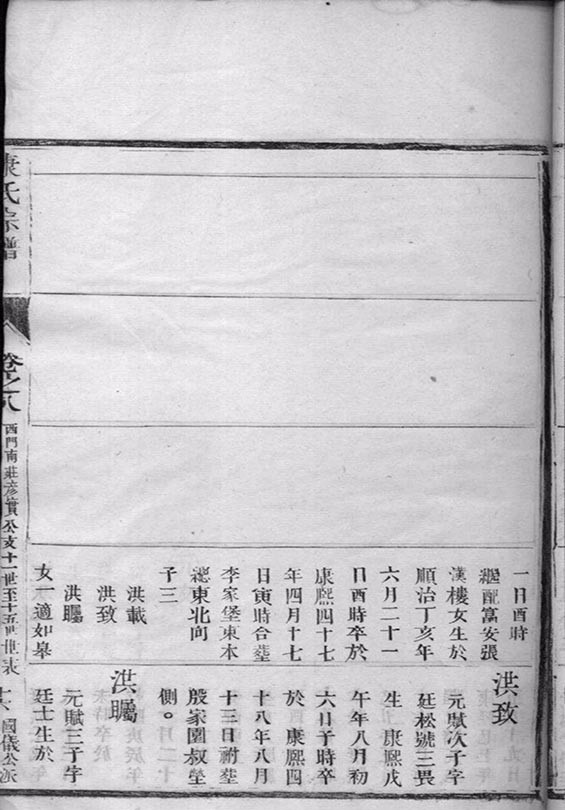 一日酉時
繼配富安張
漢樓女生於
順治丁亥年
六月二十一
日酉時卒於
康熙四十七
年四月十七
日寅時合塟
李家堡東本
塋東北向
子三
洪載
洪致
洪矚
女一適如皋
洪致
元賦次子字
廷松號三畏
生 康熙戊
午年八月初
六日子時卒
於 康熙四
十八年八月
十三日祔塟
殷家園叔塋
側。
洪矚
元賦三子字
廷士生於
康氏宗譜
卷之八
西門南莊彦賓公支十一世至十五世世表
國儀公派